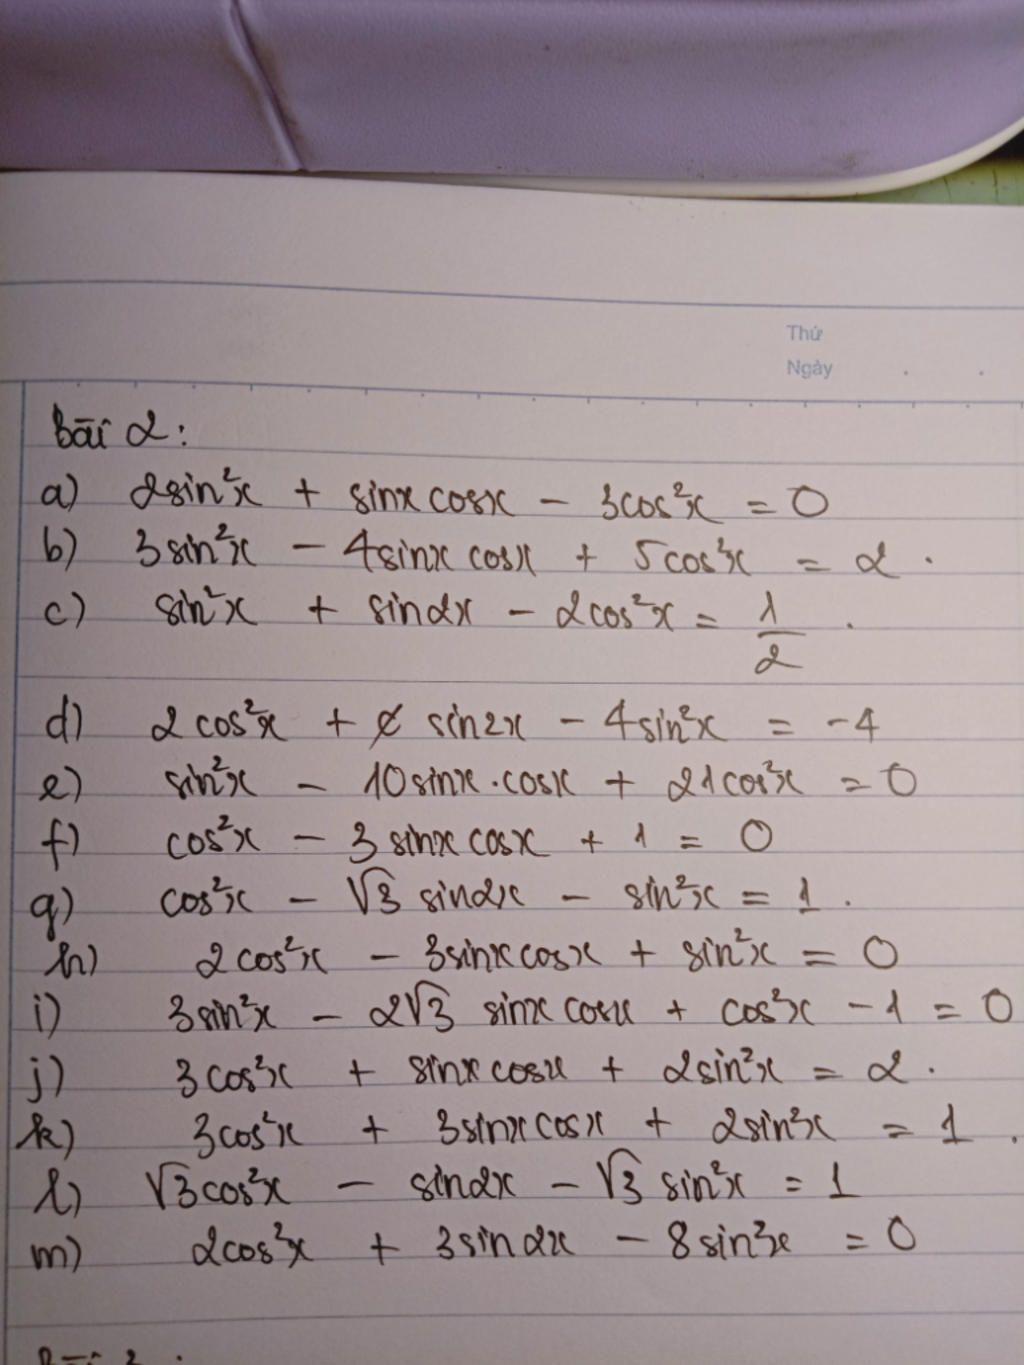 Thứ
Ngày
Bài 2:
a) 2sin²x + sinx cosx - 3cos²x = 0
b) 3sin²x - 4sinx cosx + 5cos²x = 2.
c) sin²x + sin2x - 2cos²x = 1/2.
d) 2cos²x + sin2x - 4sin²x = -4
e) sin²x - 10sinx.cosx + 21cos²x = 0
f) cos²x - 3sinx cosx + 1 = 0
g) cos²x - √3 sin2x - sin²x = 1.
h) 2cos²x - 3sinx cosx + sin²x = 0
i) 3sin²x - 2√3 sinx cosx + cos²x - 1 = 0
j) 3cos²x + sinx cosx + 2sin²x = 2.
k) 3cos²x + 3sinx cosx + 2sin²x = 1.
l) √3cos²x - sin2x - √3 sin²x = 1
m) 2cos²x + 3sin2x - 8sin²x = 0